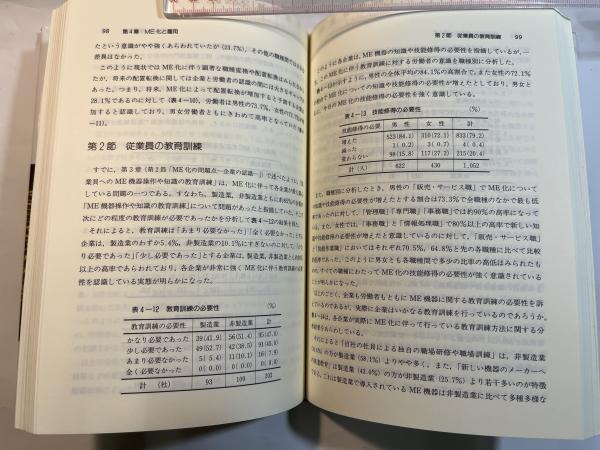 98　第4章　ME化と雇用
たという意識がやや強くあらわれていたが（23.7%），その他の職種間では
差異はなかった。
このように現状ではME化に伴う顕著な職種変換や配置転換は
たが，将来の配置転換に関しては企業と労働者の認識の間には大き
あった。つまり，将来，ME化によって配置転換が増加すると予測する企業
28.1%であるのに対して（表4—10），労働者は男性の73.7%，女性の72.7%が増
加すると認識しており，男女労働者ともにきわめて高率となっていた
—11）。
第2節　従業員の教育訓練
すでに，第3章（第2節「ME化の問題点—企業の認識—」）で述べたように，
業員へのME機器操作や知識の教育訓練」は，ME化に伴って各企業が
している問題の一つである。すなわち，製造業，非製造業ともに約60%の企業が
「ME機器操作や知識の教育訓練」について問題があったと指摘していた。
次にどの程度の教育訓練が必要であったかを分析して表4—12の結果を得た。
それによると，教育訓練は「あまり必要なかった」「全く必要なかった」とする
企業は，製造業のわずか5.4%，非製造業の10.1%にすぎないのに対し，「かな
り必要であった」「少し必要であった」とする企業は，製造業，非製造業とも約90%
以上の高率であらわれており，各企業が非常に強くME化に伴う教育訓練の必要
性を認識している実態が明らかになった。
表4—12　教育訓練の必要性　（%）
教育訓練の必要性　製造業　非製造業　計
かなり必要であった　39(41.9)　56(51.4)　95(47.0)
少し必要であった　49(52.7)　42(38.5)　91(45.0)
あまり必要なかった　5( 5.4)　11(10.1)　16( 7.9)
全く必要なかった　0( 0.0)　0( 0.0)　0( 0.0)
計　（社）　93　109　202
第2節　従業員の教育訓練　99
このように各企業は，ME機器の知識や技能修得の必要性を指摘しているが，一
このME化に伴う教育訓練に対する労働者の意識を職種別に分析した。
示すように，男性の全体平均の84.1%の高割合で，また女性の72.1%
ME化についての知識や技能修得の必要性が増えたとしており，男女と
今日のME化の技能修得の必要性を強く意識している。
表4—13　技能修得の必要性　（%）
技能修得の必要　男 性　女 性　計
増えた　523(84.1)　310(72.1)　833(79.2)
減った　1( 0.2)　3( 0.7)　4( 0.4)
変わらない　98(15.8)　117(27.2)　215(20.4)
計（人）　622　430　1,052
また，職種別に分析したとき，男性の「販売・サービス職」でME化について
の知識や技能修得の必要性が増えたとする割合は73.3%で全職種のなかで最も低
率であったのに対して，「管理職」「専門職」「事務職」では約90%の高率になって
いる。また，女性では，「事務職」と「情報処理職」で80%以上の高率で新しい知
識や技能修得の必要性が増えたと意識しているのに対して，「販売・サービス職」
「技能作業職」においてはそれぞれ70.5%，64.8%と先の各職種に比べて比較
的低率であった。このように男女とも各職種間で多少の比率の高低はみられたも
のの，すべての職種にわたってME化の技能修得の必要性が強く意識されている
ことが明らかになった。
以上のごとく，企業も労働者もともにME機器に関する教育訓練の必要性を訴
えているのであるが，実際に企業はいかなる教育訓練を行っているのであろうか。
は，各企業が実際にME化に伴って行っている教育訓練方法に関する分
析結果をあらわしている。
それによると「自社の社員による独自の職場研修や職場訓練」は，非製造業
の方が製造業（58.1%）よりやや多く，また，「新しい機器のメーカーへ
は製造業（43.0%）の方が非製造業（25.7%）より若干多いのが特徴
これは製造業で導入されているME機器は非製造業に比べて多種多様な